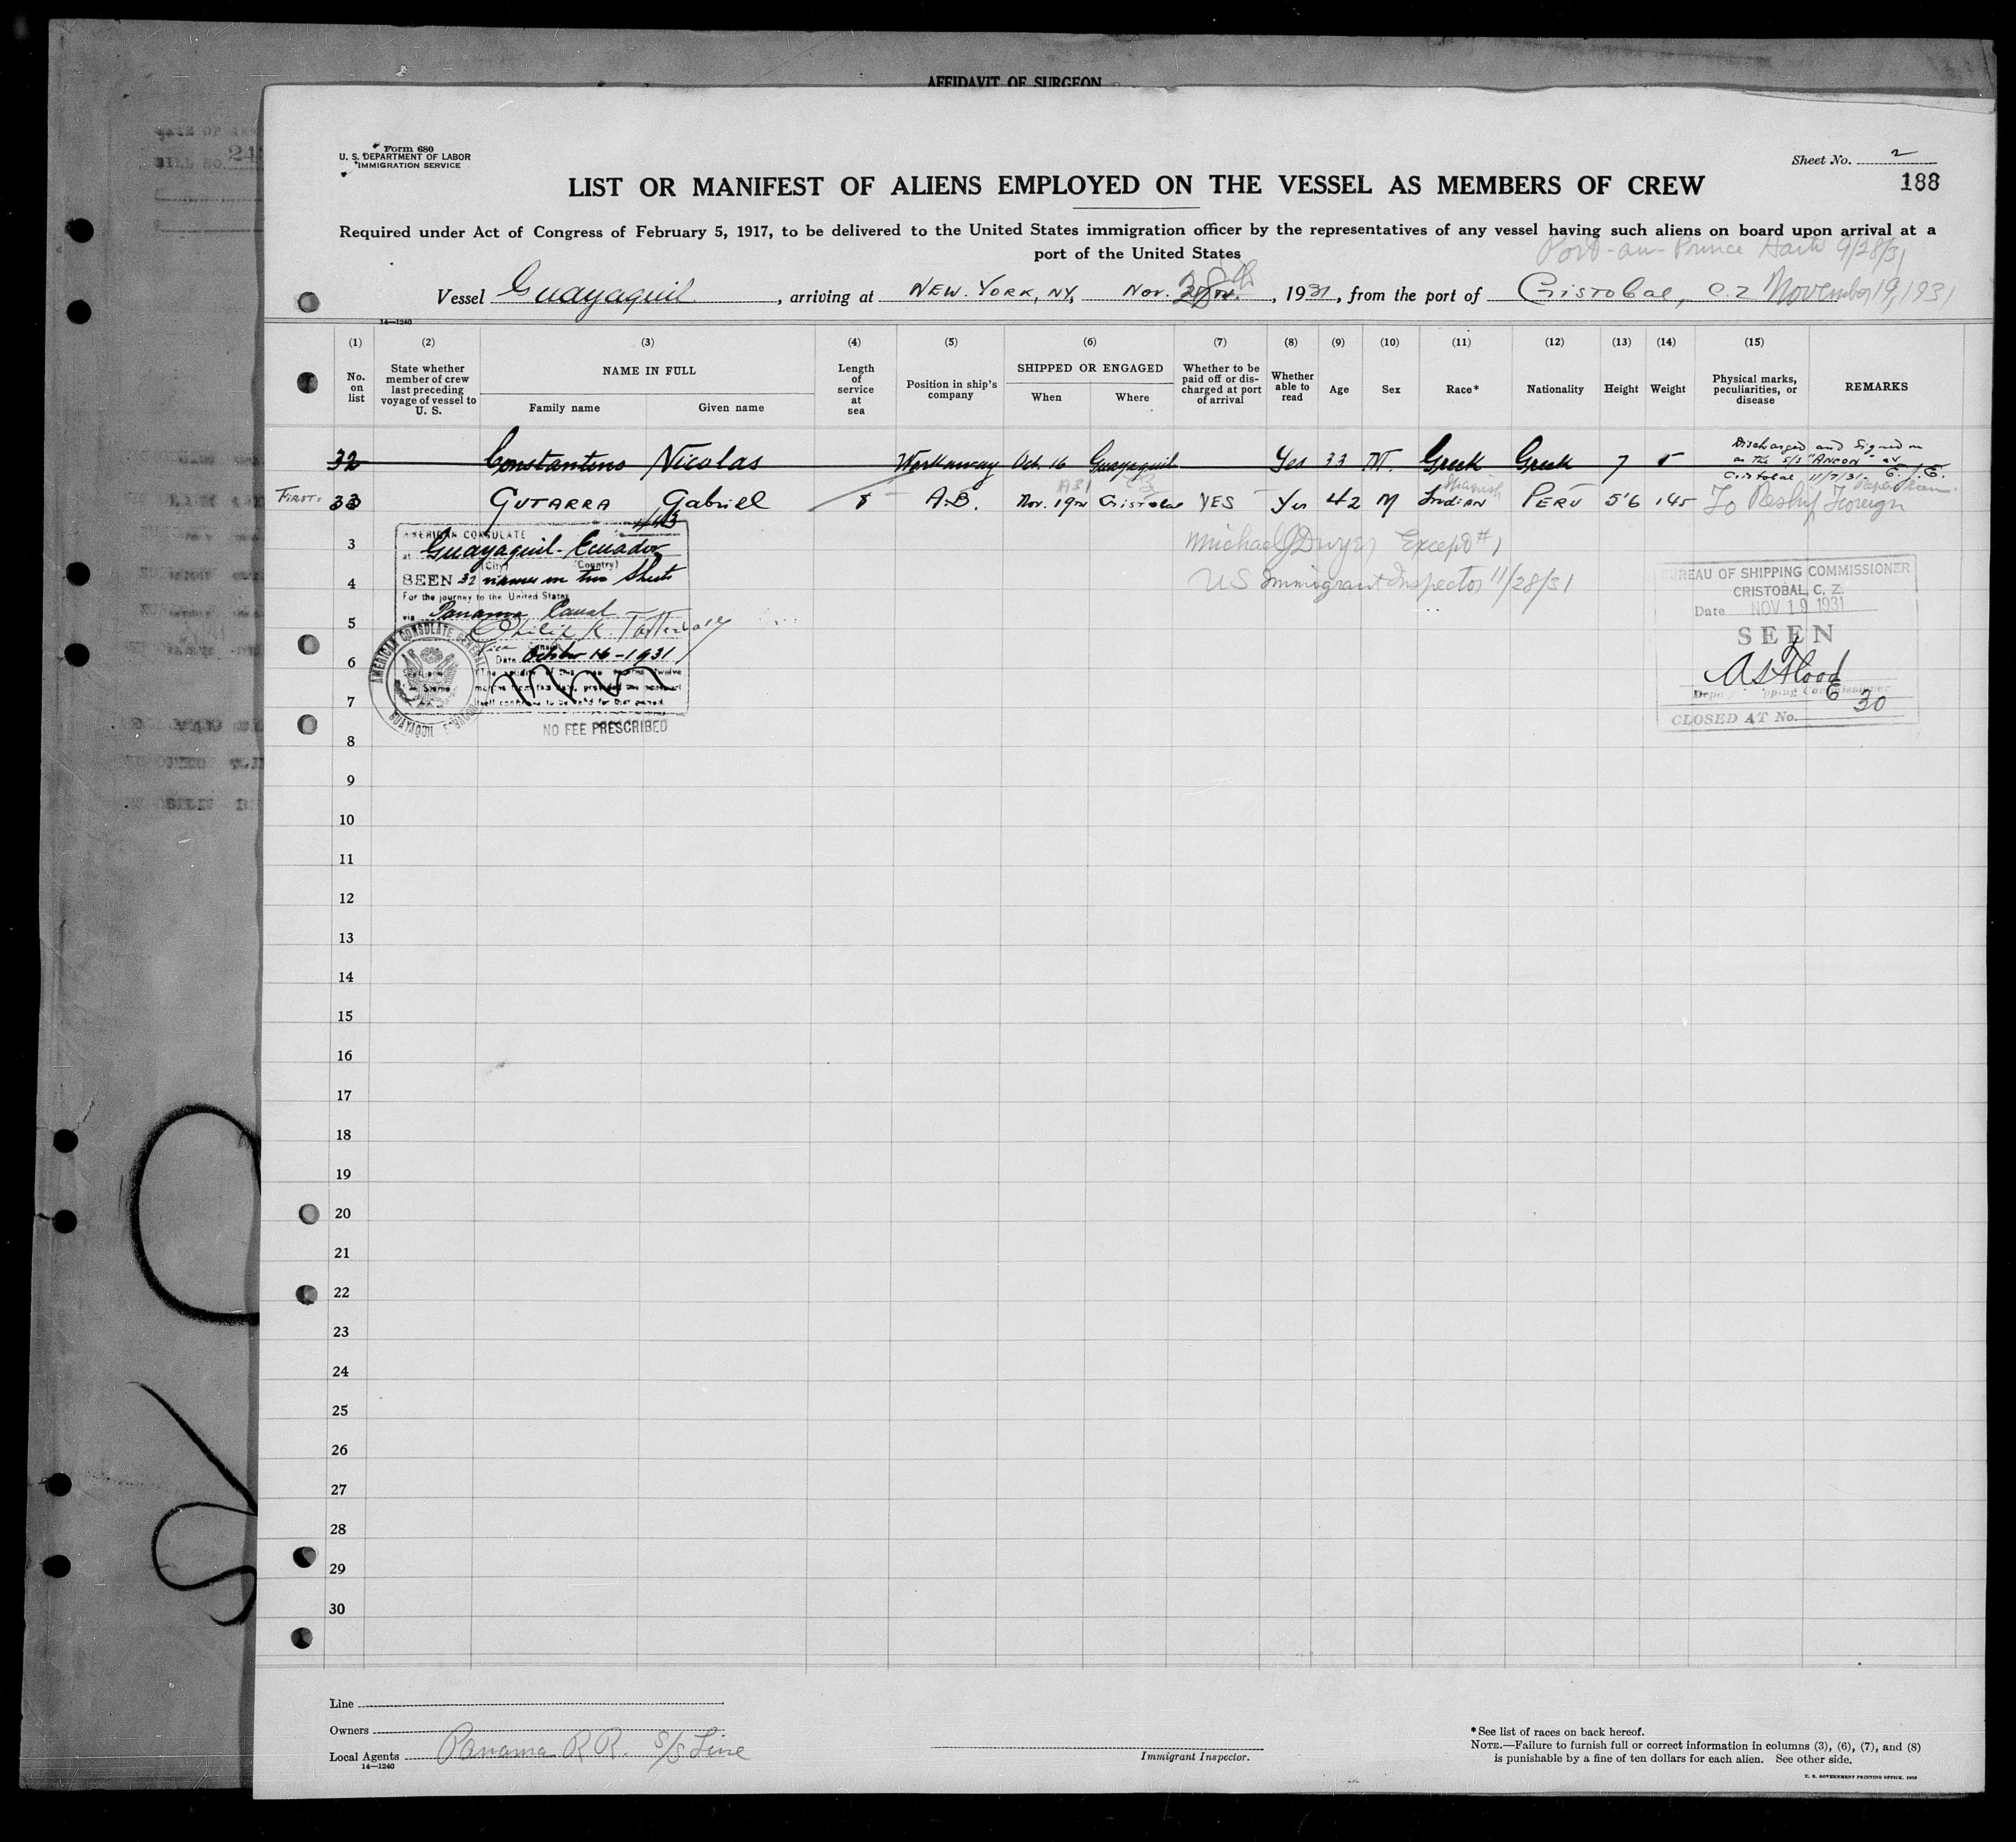 AFFIDAVIT OF SURGEON
Form 680
U. S. DEPARTMENT OF LABOR
IMMIGRATION SERVICE
Sheet No. 2
188
LIST OR MANIFEST OF ALIENS EMPLOYED ON THE VESSEL AS MEMBERS OF CREW
Required under Act of Congress of February 5, 1917, to be delivered to the United States immigration officer by the representatives of any vessel having such aliens on board upon arrival at a
port of the United States
Port-au-Prince Haiti 9/28/31
Vessel Guayaquil, arriving at NEW YORK, NY, Nov. 28th, 1931, from the port of Cristobal, C.Z November 19, 1931
14—1240
(1) (2) (3) (4) (5) (6) (7) (8) (9) (10) (11) (12) (13) (14) (15)
No. on list
State whether member of crew last preceding voyage of vessel to U. S.
NAME IN FULL
Family name
Given name
Length of service at sea
Position in ship's company
SHIPPED OR ENGAGED
When
Where
Whether to be paid off or discharged at port of arrival
Whether able to read
Age
Sex
Race*
Nationality
Height
Weight
Physical marks, peculiarities, or disease
REMARKS
32 Constantino Nicolas Workaway Oct. 16 Guayaquil Yes 33 M. Greek Greek Discharged and signed on
on the S/S "ANCON" at
Cristobal 11/7/31. E.J.E.
First. 33 GUTARRA Gabriel 8 A.B. Nov. 19th Cristobal YES Yes 42 M Indian Spanish PERU 5'6 145 To Reship Foreign
3
4
5
6
7
8
9
10
11
12
13
14
15
16
17
18
19
20
21
22
23
24
25
26
27
28
29
30
AMERICAN CONSULATE
at Guayaquil - Ecuador
(City) (Country)
SEEN 32 names in two sheets
For the journey to the United States
via Panama Canal
Vice Consul
Date October 16 - 1931
AMERICAN CONSULATE GENERAL
GUAYAQUIL
NO FEE PRESCRIBED
Michael J Dwyer Except #1
US Immigrant Inspector 11/28/31
BUREAU OF SHIPPING COMMISSIONER
CRISTOBAL, C. Z.
Date NOV 19 1931
SEEN
AS Flood
Deputy Shipping Commissioner
CLOSED AT No. 30
Line
Owners
Local Agents Panama R R. S/S Line
14—1240
Immigrant Inspector.
*See list of races on back hereof.
NOTE.—Failure to furnish full or correct information in columns (3), (6), (7), and (8)
is punishable by a fine of ten dollars for each alien. See other side.
U. S. GOVERNMENT PRINTING OFFICE